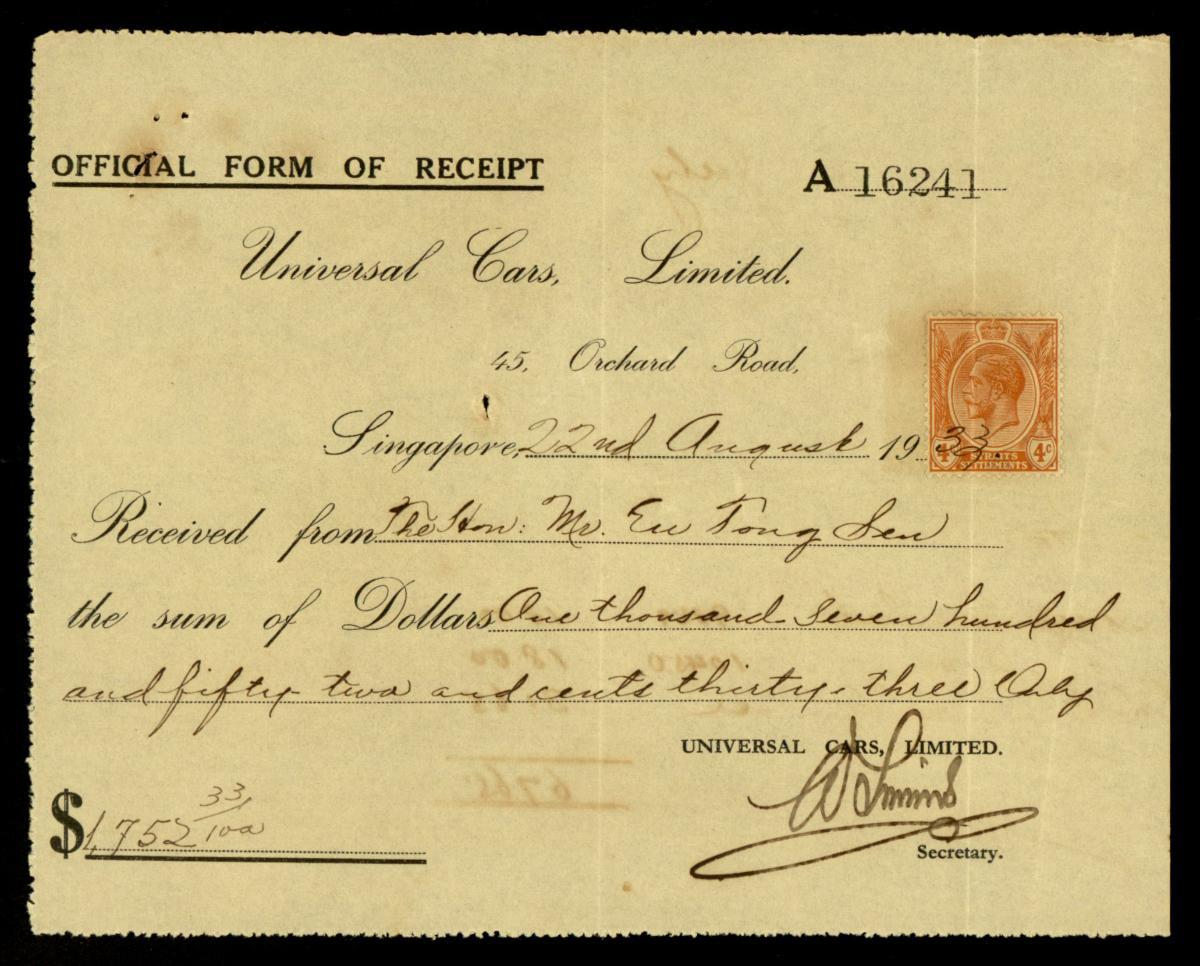 OFFICIAL FORM OF RECEIPT
A 16241
Universal Cars, Limited.
45, Orchard Road,
Singapore, 22nd August 1933.
4c STRAITS SETTLEMENTS 4c
Received from The Hon: Mr. Eu Tong Sen
the sum of Dollars One thousand seven hundred
and fifty two and cents thirty-three Only
UNIVERSAL CARS, LIMITED.
$1,752 33/100
Secretary.